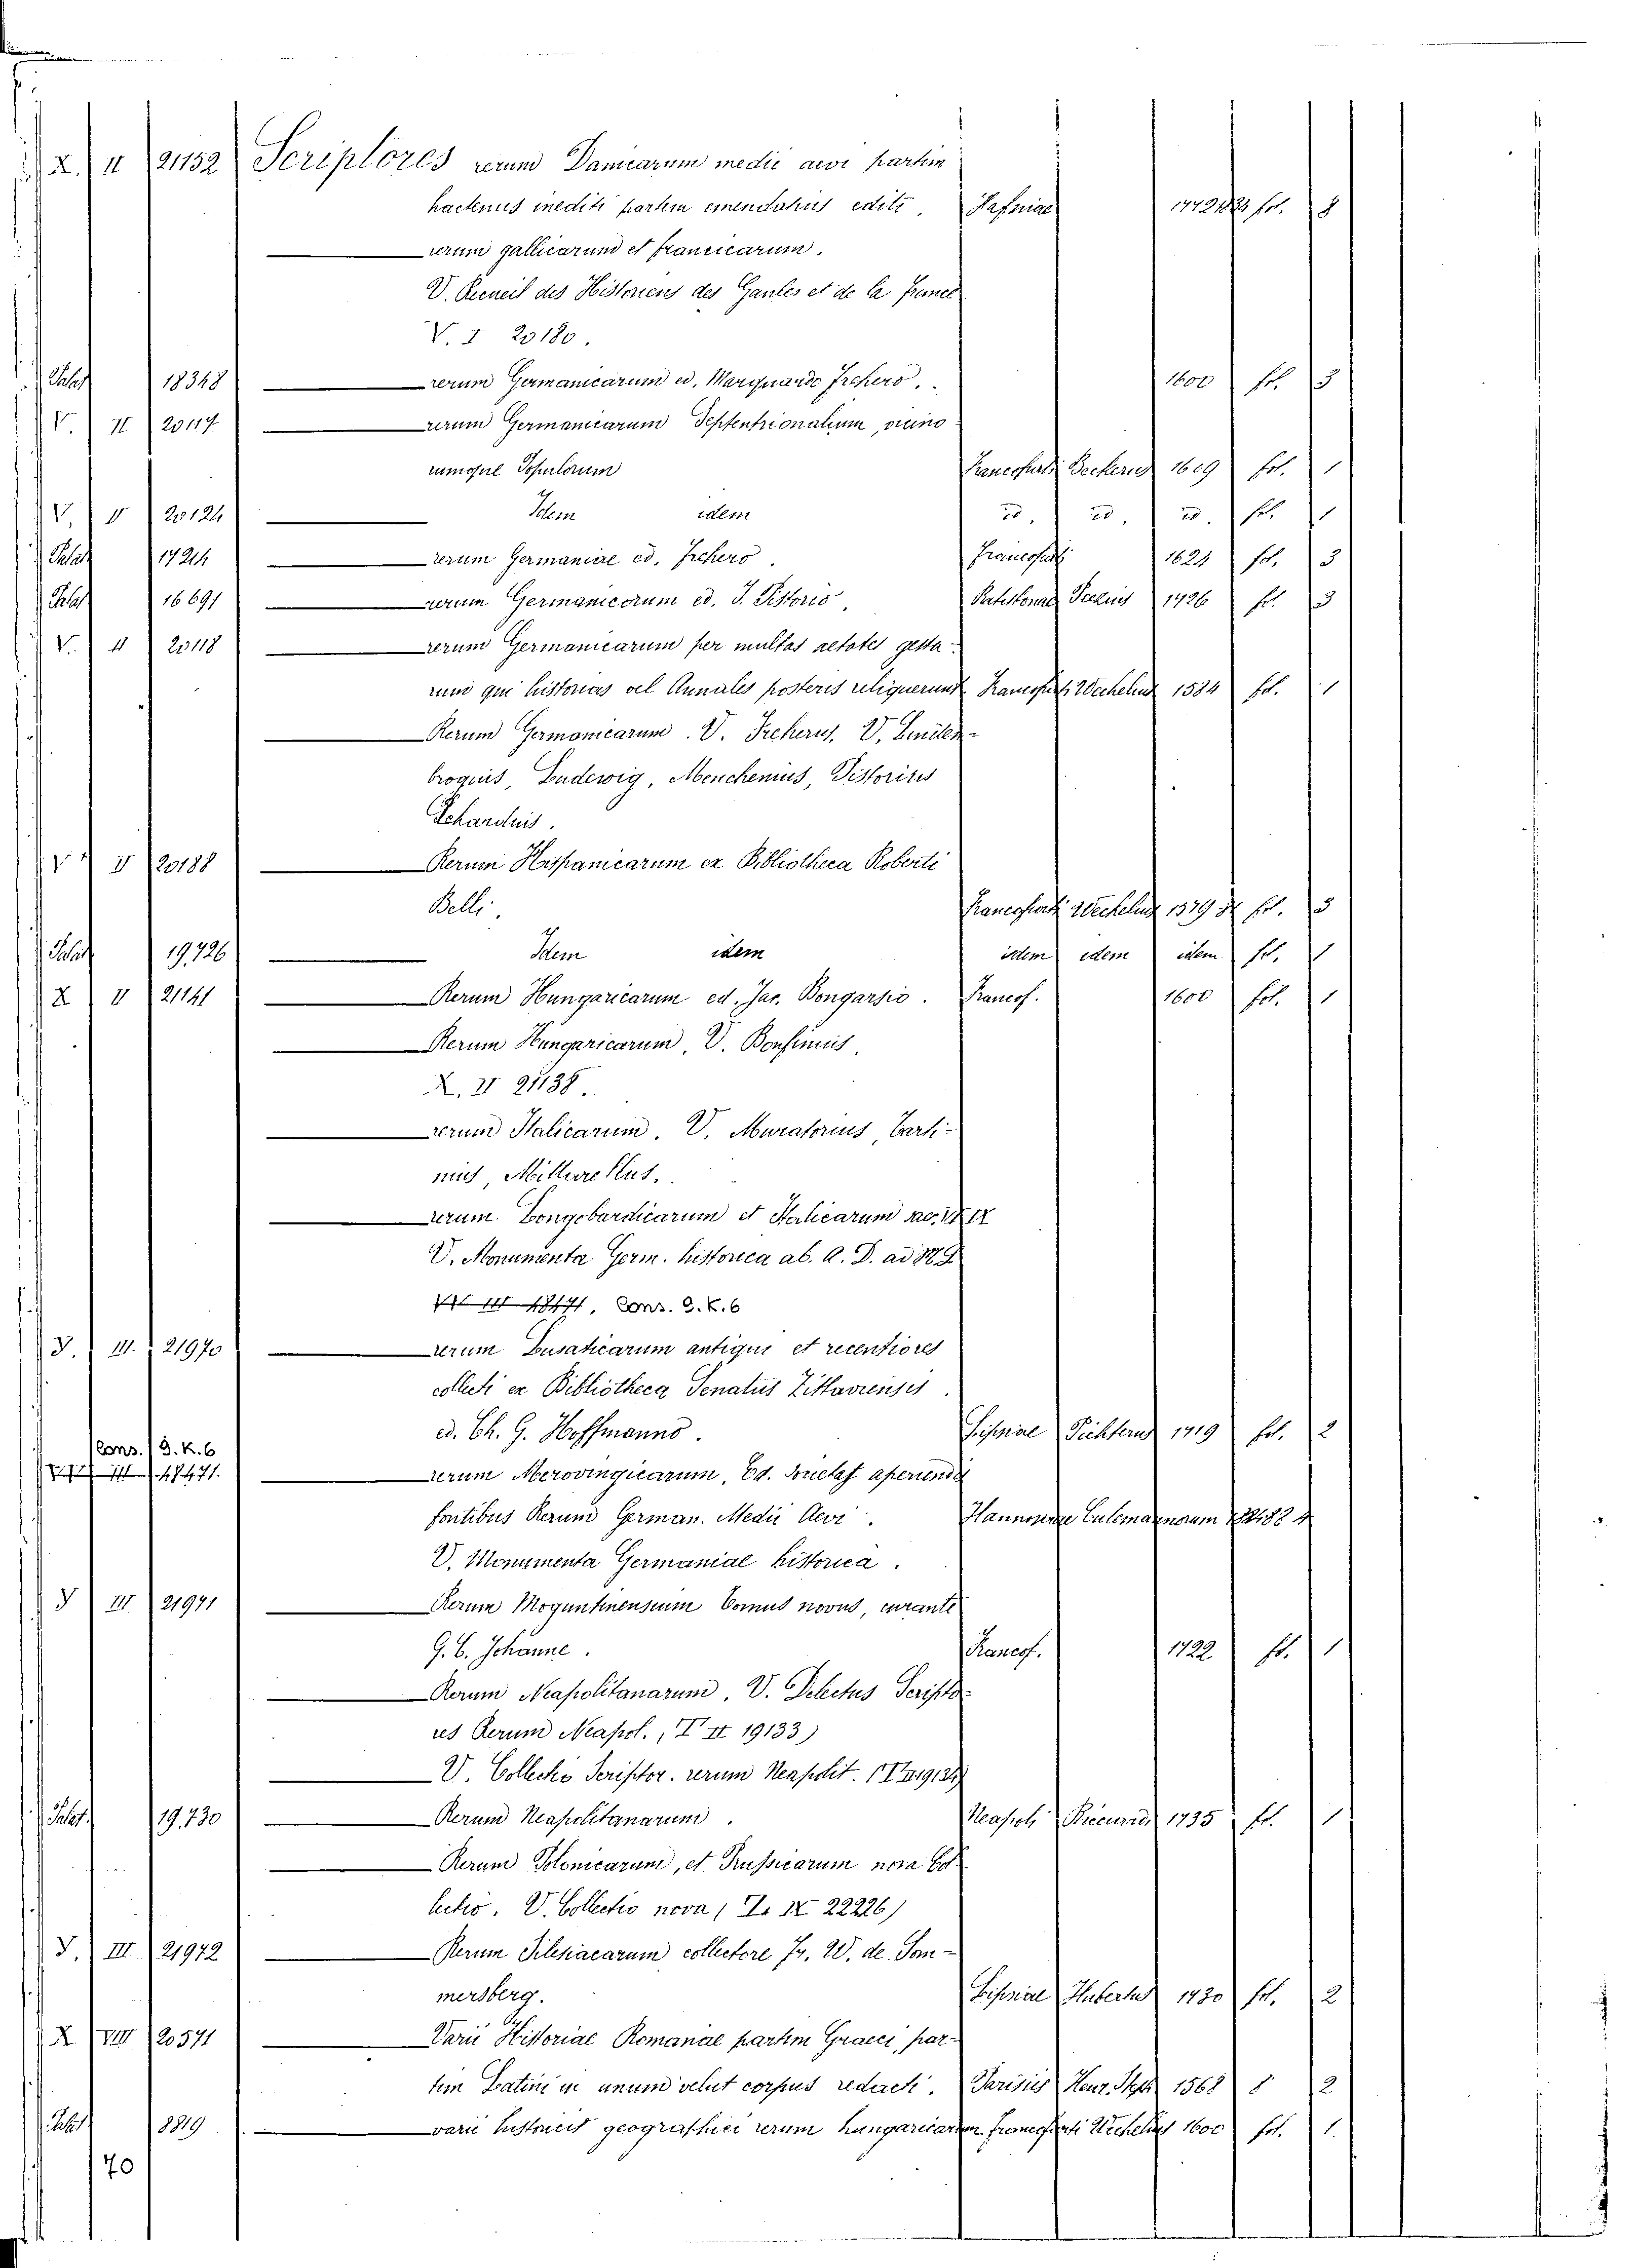 X. II 21152 Scriptores rerum Danicarum medii aevi partim
hactenus inediti partim emendatius editi. Hafniae fol. 8
— rerum gallicarum et francicarum.
V. Recueil des Historiens des Gaules et de la france
V. I 20180.
Palat 18348 — rerum Germanicarum ed. Marquardo frehero. 1600 fol. 3
V. II 20117. — rerum Germanicarum Septentrionalium, vicino
rumque Populorum Francofurti Beckerus 1609 fol. 1
V. II 20124 — Idem idem id. id. id. fol. 1
Palat 17214 — rerum Germaniae ed. frehero. francofurti 1624 fol. 3
Palat 16691 — rerum Germanicarum ed. J. Pistorio, Ratisbonae Peezius 1726 fol. 3
V. II 20118 — rerum Germanicarum per multas aetates gesta-
rum qui historias vel Annales posteris reliquerunt Francofurti Wechelus 1584 fol. 1
— Rerum Germanicarum. V. Freherus, V. Linden-
brogius, Ludewig, Menchenius, Pistorius
Echardus.
V II 20188 — Rerum Hispanicarum ex Bibliotheca Roberti
Belli. Francofurti Wechelus 1579 fol. 3
Palat 19,726 — Idem idem idem idem idem fol. 1
X V 21141 — Rerum Hungaricarum ed. Jac. Bongarsio. Francof. 1600 fol. 1
— Rerum Hungaricarum, V. Bonfinius,
X. II 21138.
— rerum Italicarum. V. Muratorius, Tarti-
nius, Mittarellus.
— rerum Longobardicarum et Italicarum saec. VI-IX
V. Monumenta Germ. historica ab. A. D. ad M. D
III 18471, Cons. G. K. 6
Y. III. 21970 — rerum Lusaticarum antiqui et recentiores
collecti ex Bibliotheca Senatus Zittaviensis.
ed. Ch. G. Hoffmanno. Lipsiae Richterus 1719 fol. 2
Cons. G. K. 6
III 18471. — rerum Merovingicarum, Ed. Societas aperiendis
fontibus Rerum German. Medii Aevi. Hannoverae Culemannorum 1884
V. Monumenta Germaniae historica.
Y III 21971 — Rerum Moguntinensium Tomus novus, curante
G. C. Johanne. Francof. 1722 fol. 1
— Rerum Neapolitanarum, V. Delectus Scripto-
res Rerum Neapol., (T II 19133)
— V. Collectio Scriptor. rerum Neapolit.
Palat. 19,730 — Rerum Neapolitanarum. Neapoli Ricciardi 1735 fol. 1
— Rerum Polonicarum, et Prussicarum nova Col-
lectio. V. Collectio nova (Z. IX 22226)
Y. III 21972 — Rerum Silesiacarum collectore Fr. W. de Som-
mersberg. Lipsiae Hubertus 1730 fol. 2
X VIII 20571 — Varii Historiae Romanae partim Graeci, par-
tim Latini in unum velut corpus redacti. Parisiis Henr. Steph 1568 8 2
Palat 8819 — varii historici geographici rerum hungaricarum francofurti Wechelius 1600 fol. 1.
70